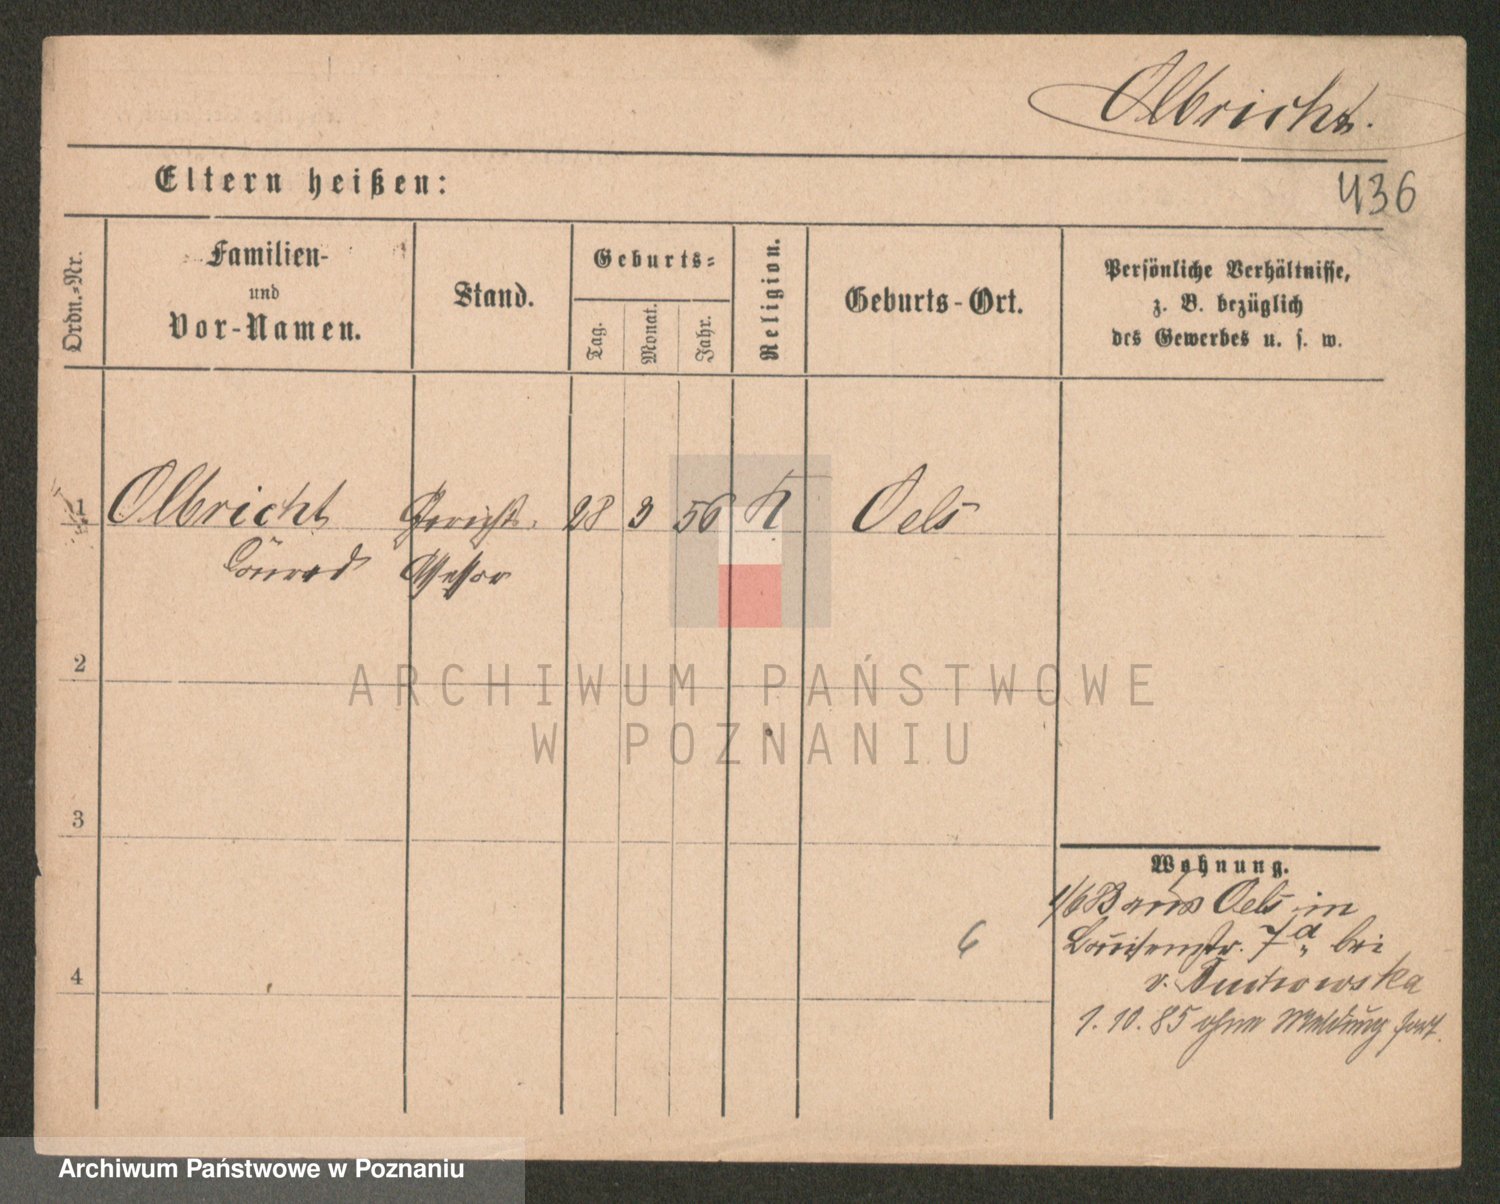 Olbricht.
Eltern heißen:
436
Ordn.-Nr.
Familien-
und
Vor-Namen.
Stand.
Geburts-
Tag.
Monat.
Jahr.
Religion.
Geburts-Ort.
Persönliche Verhältnisse,
z. B. bezüglich
des Gewerbes u. s. w.
1 Olbricht Gerichts. 28 3 56 K Oels
Conrad Assessor
2
ARCHIWUM PAŃSTWOWE
W POZNANIU
3
Wohnung.
aus Oels in
6
Louisenstr. 7a bei
4
v.
1. 10. 85 ohne Meldung fort.
Archiwum Państwowe w Poznaniu